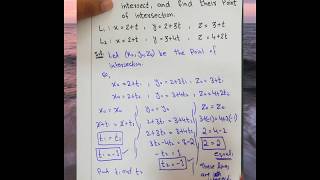 intersect, and find their Point
of intersection.
L₁: x = 2+t, y = 2+3t, z = 3+t
L₂: x = 2+t, y = 3+4t, z = 4+2t
Sol: Let (x₀, y₀, z₀) be the Point of
intersection.
So,
x₀ = 2+t₁, y₀ = 2+3t₁, z₀ = 3+t₁
x₀ = 2+t₂, y₀ = 3+4t₂, z₀ = 4+2t₂
x₀ = x₀ y₀ = y₀ z₀ = z₀
2+t₁ = 2+t₂ 2+3t₁ = 3+4t₂ 3+(-1) = 4+2(-1)
t₁ = t₂ 2+3t₂ = 3+4t₂ 2 = 4-2
t₁ = -1 3t₂-4t₂ = 3-2 2 = 2
-t₂ = 1 equal
t₂ = -1 These lines
Put t₁ and t₂ are